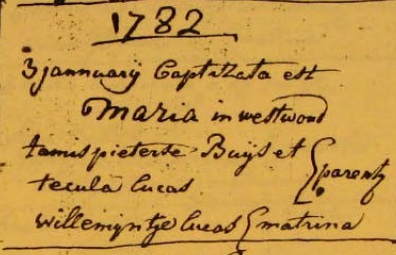 1782
3 jannuarij Baptizata est
Maria in westwoud
tamis pieterse Buijs et
tecula lucas } parentes
willemyntje lucas } matrina